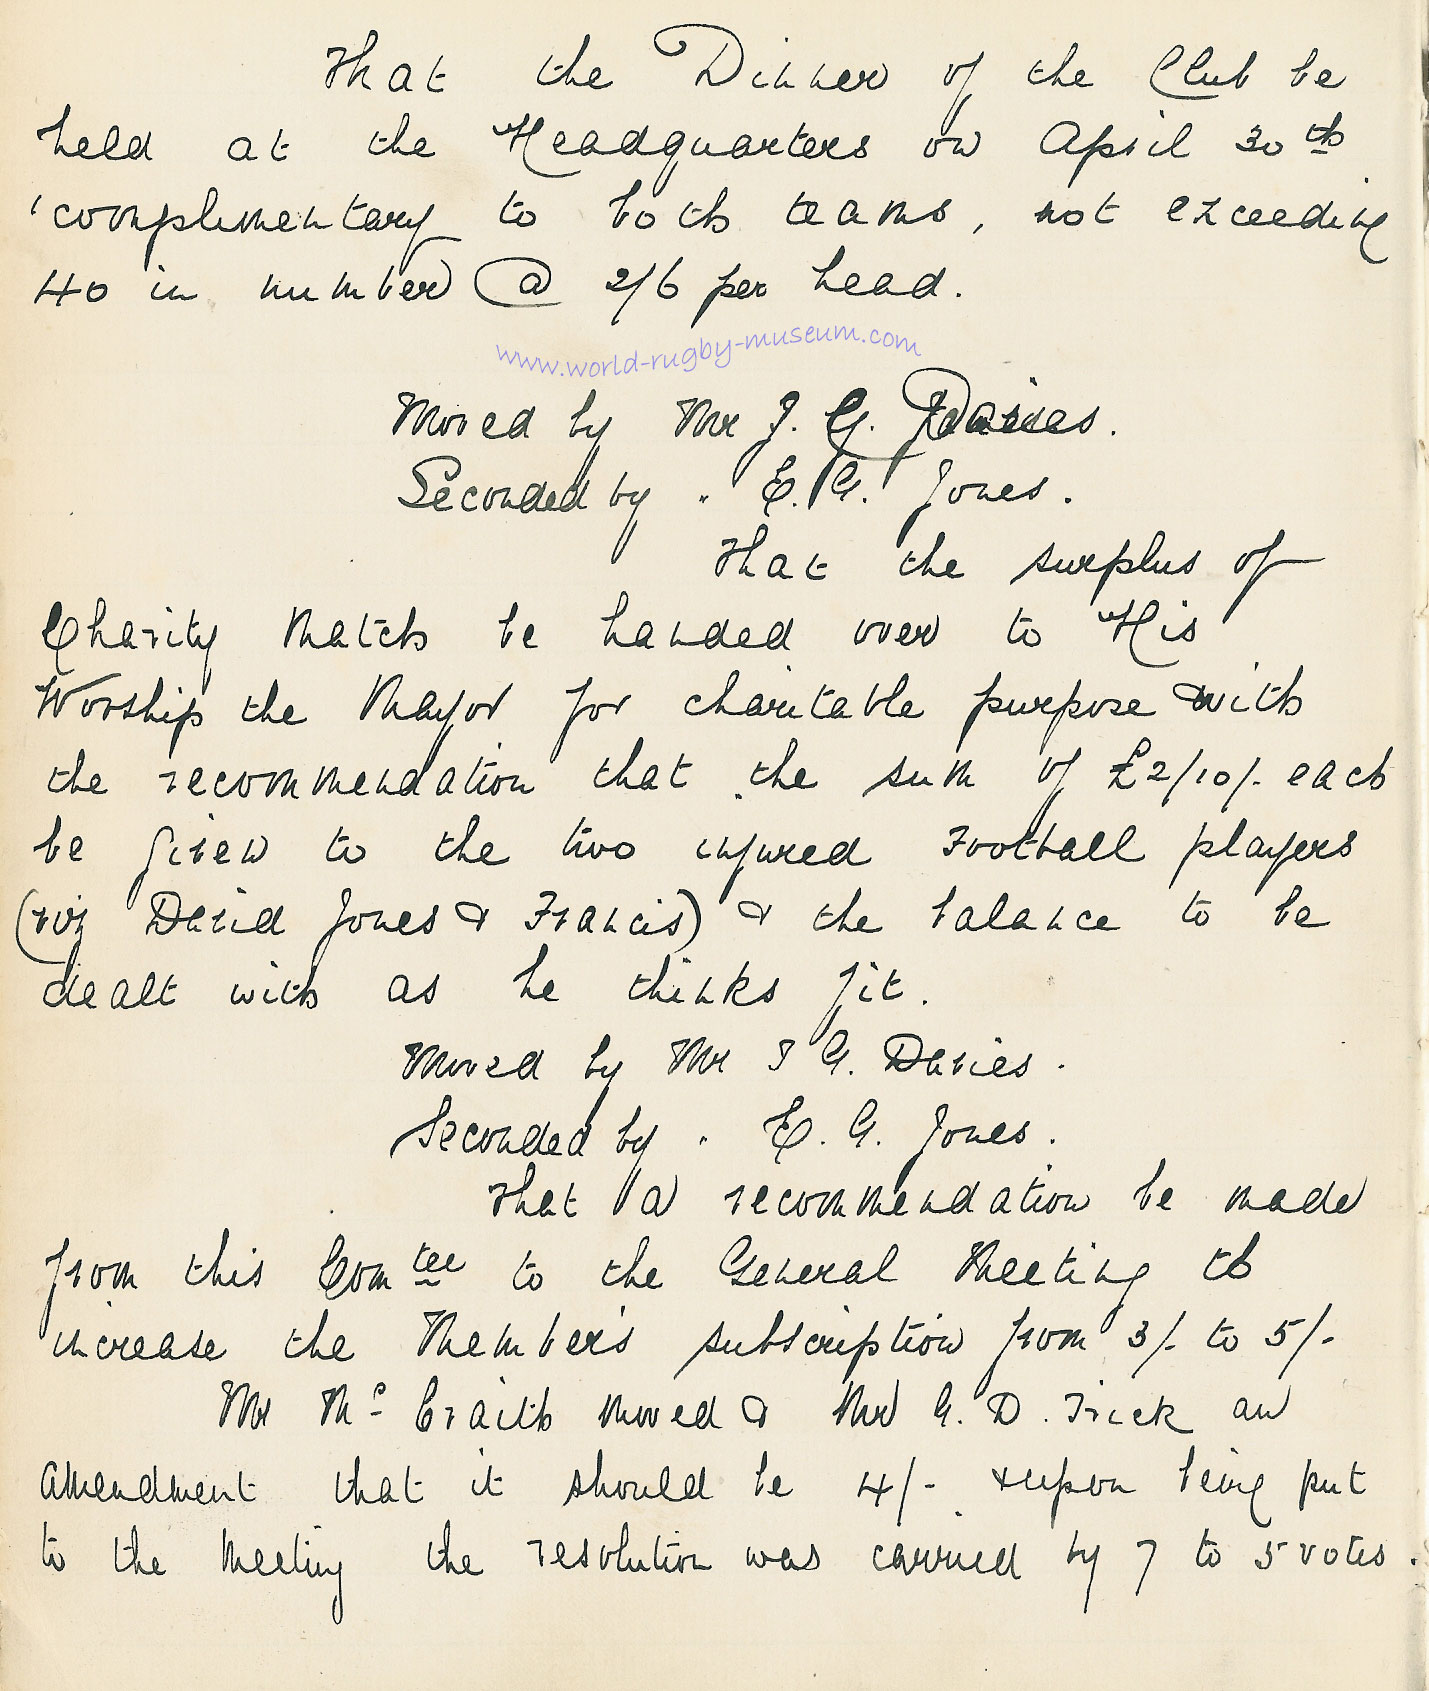 That the Dinner of the Club be
held at the Headquarters on April 30th
complimentary to both teams, not exceeding
40 in number @ 2/6 per head.
www.world-rugby-museum.com
Moved by Mr J. G. Davies.
Seconded by " E. G. Jones.
That the surplus of
Charity Match be handed over to His
Worship the Mayor for charitable purpose with
the recommendation that the sum of £2/10/- each
be given to the two injured Football players
(viz David Jones & Francis) & the balance to be
dealt with as he thinks fit.
Moved by Mr J G. Davies.
Seconded by " E. G. Jones.
That a recommendation be made
from this Comtee to the General Meeting to
increase the Members subscription from 3/- to 5/-
Mr Mc Craith moved & Mr G. D. Trick an
amendment that it should be 4/- & upon being put
to the meeting the resolution was carried by 7 to 5 votes.